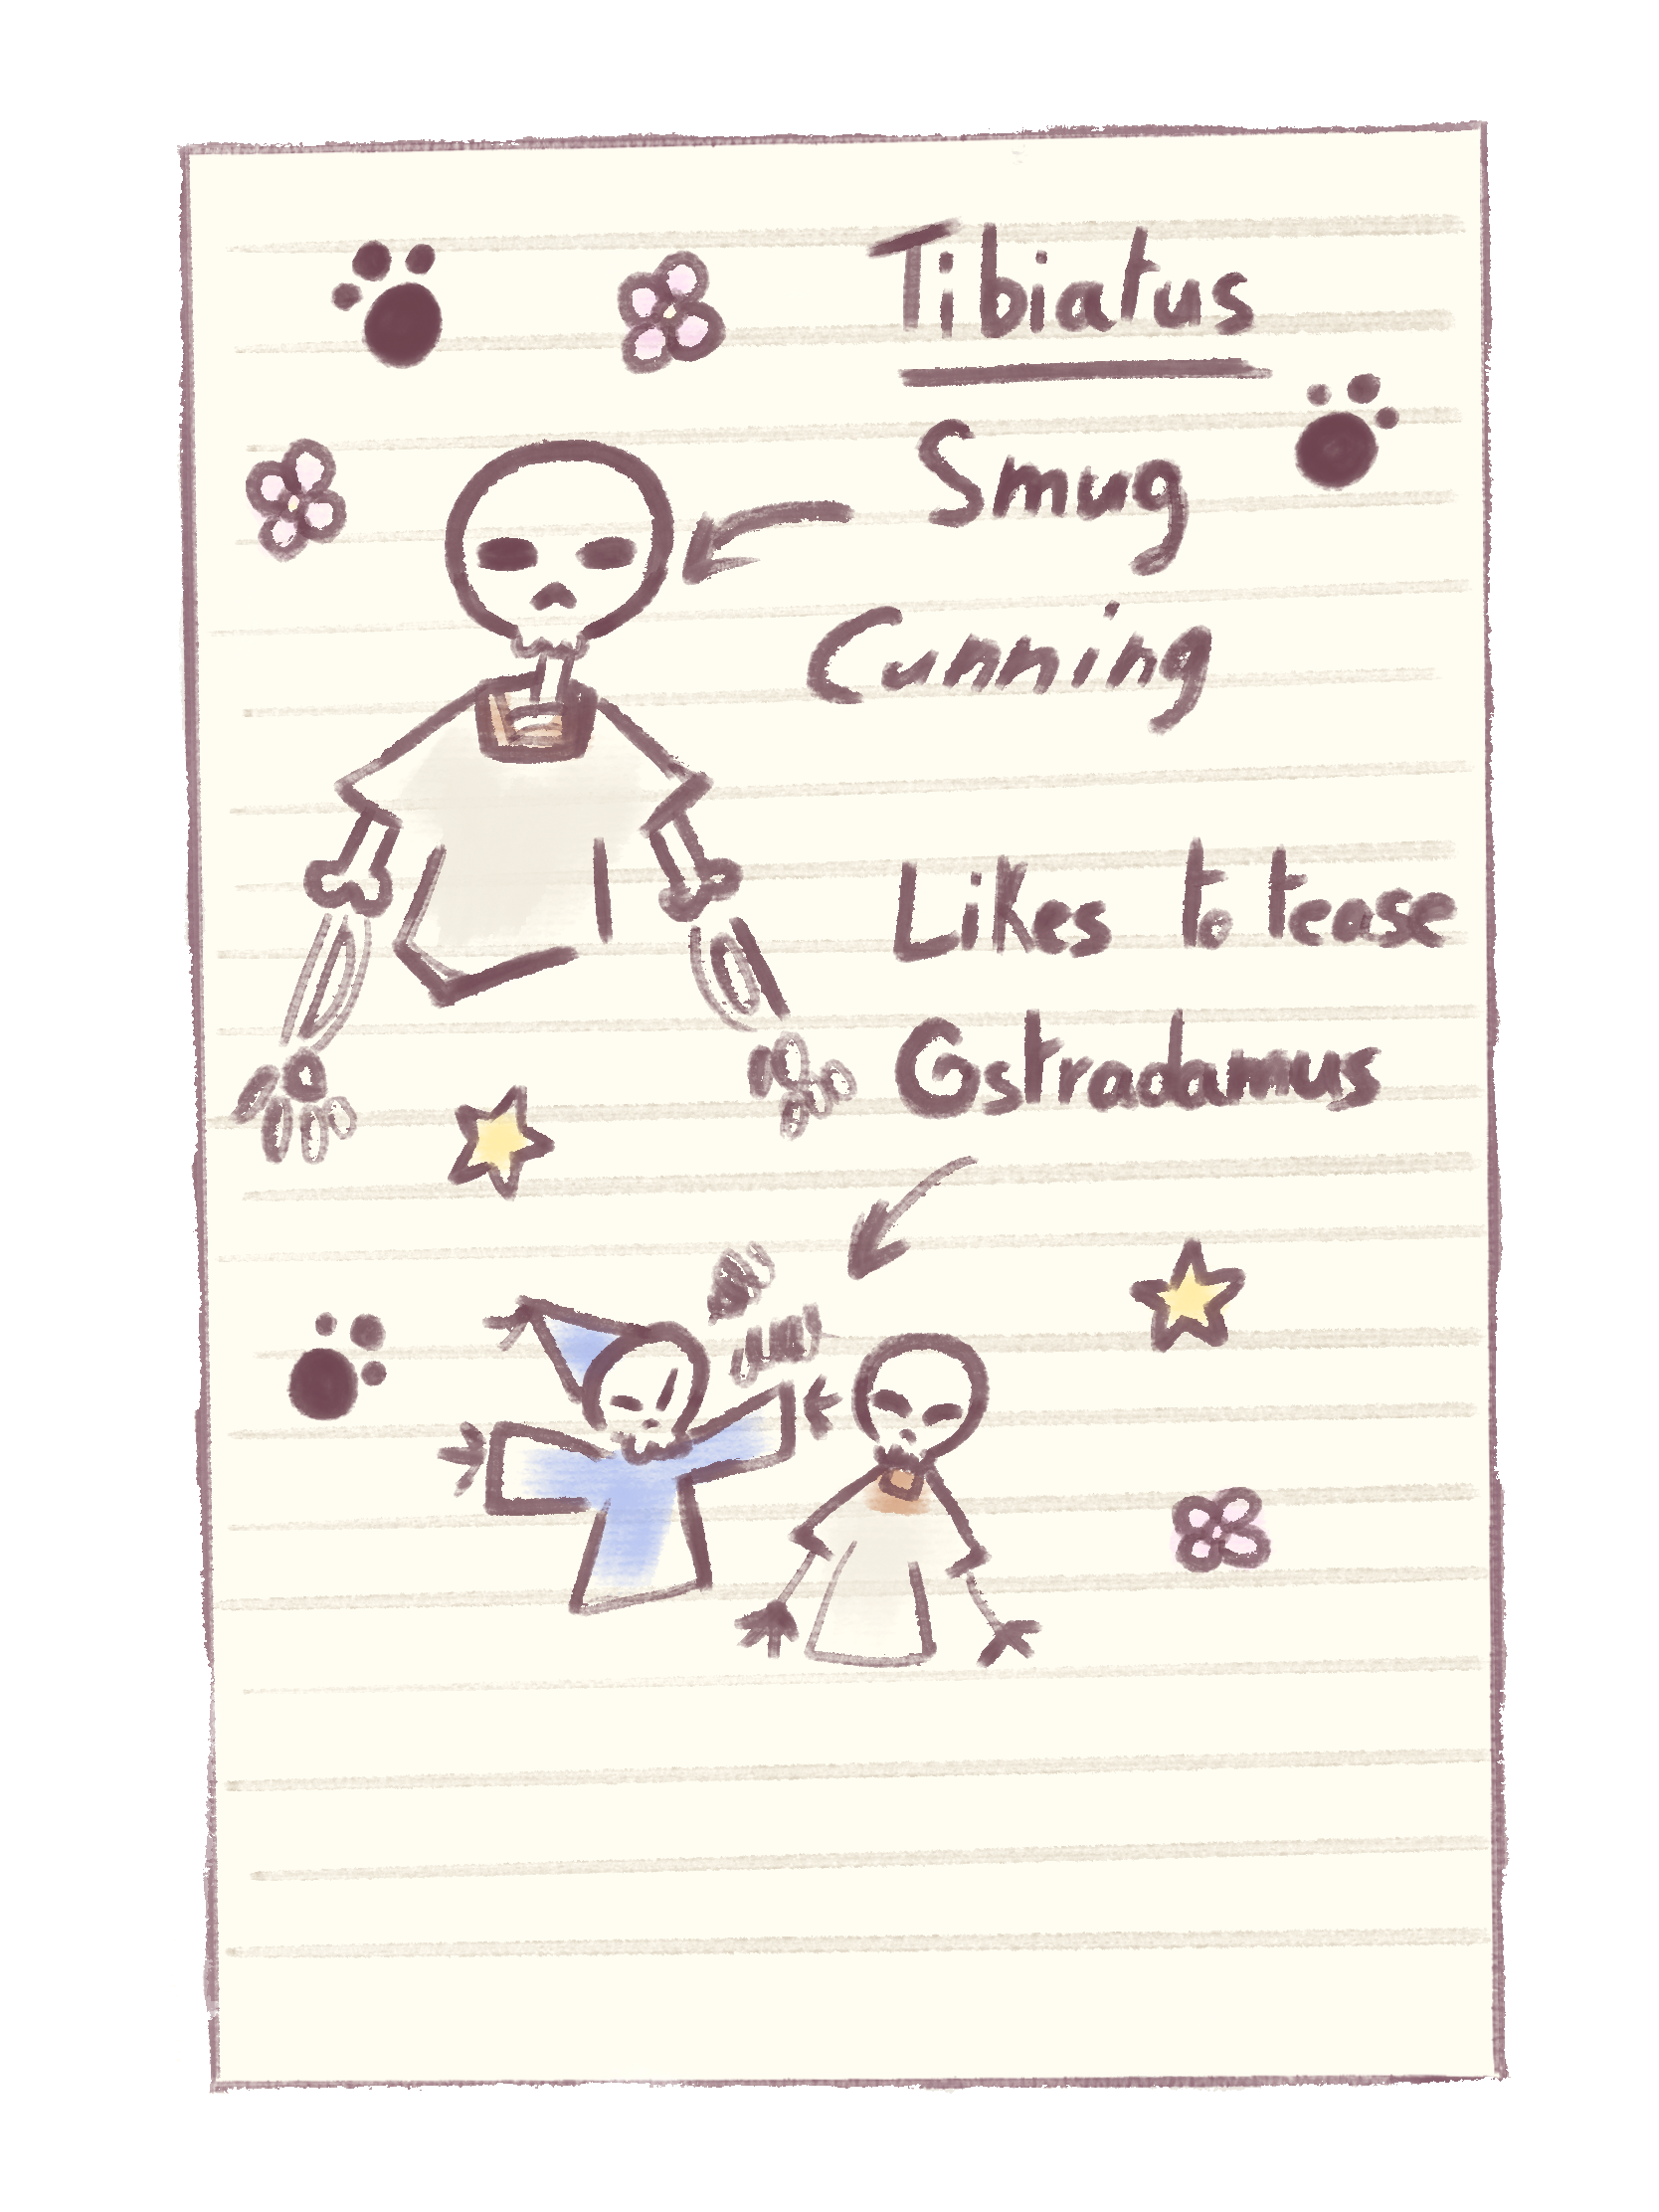 Tibiatus
Smug
Cunning
Likes to tease
Gstradamus